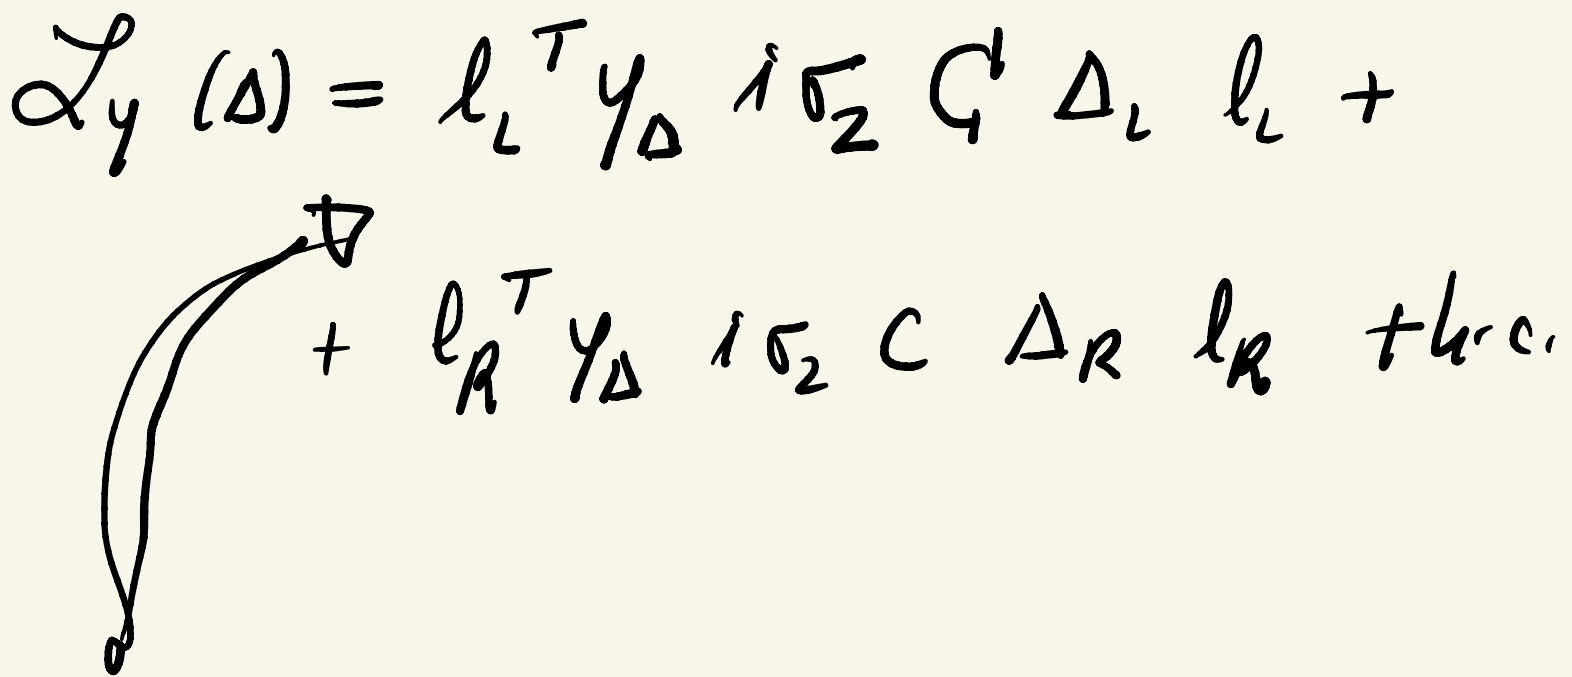 ℒ_y (Δ) = l_L^T y_Δ i σ_2 C Δ_L l_L +
+ l_R^T y_Δ i σ_2 C Δ_R l_R + h.c.